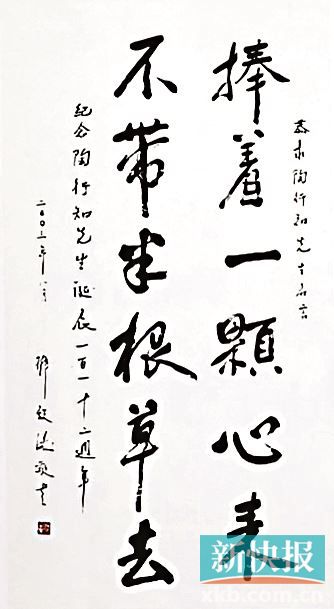 恭录陶行知先生名言
捧着一顆心来
不帶半根草去
紀念陶行知先生誕辰一百一十二週年
二〇〇三年
新快报
xkb.com.cn